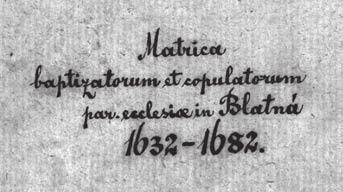 Matrica
baptizatorum et copulatorum
par. ecclesiæ in Blatná
1632-1682.